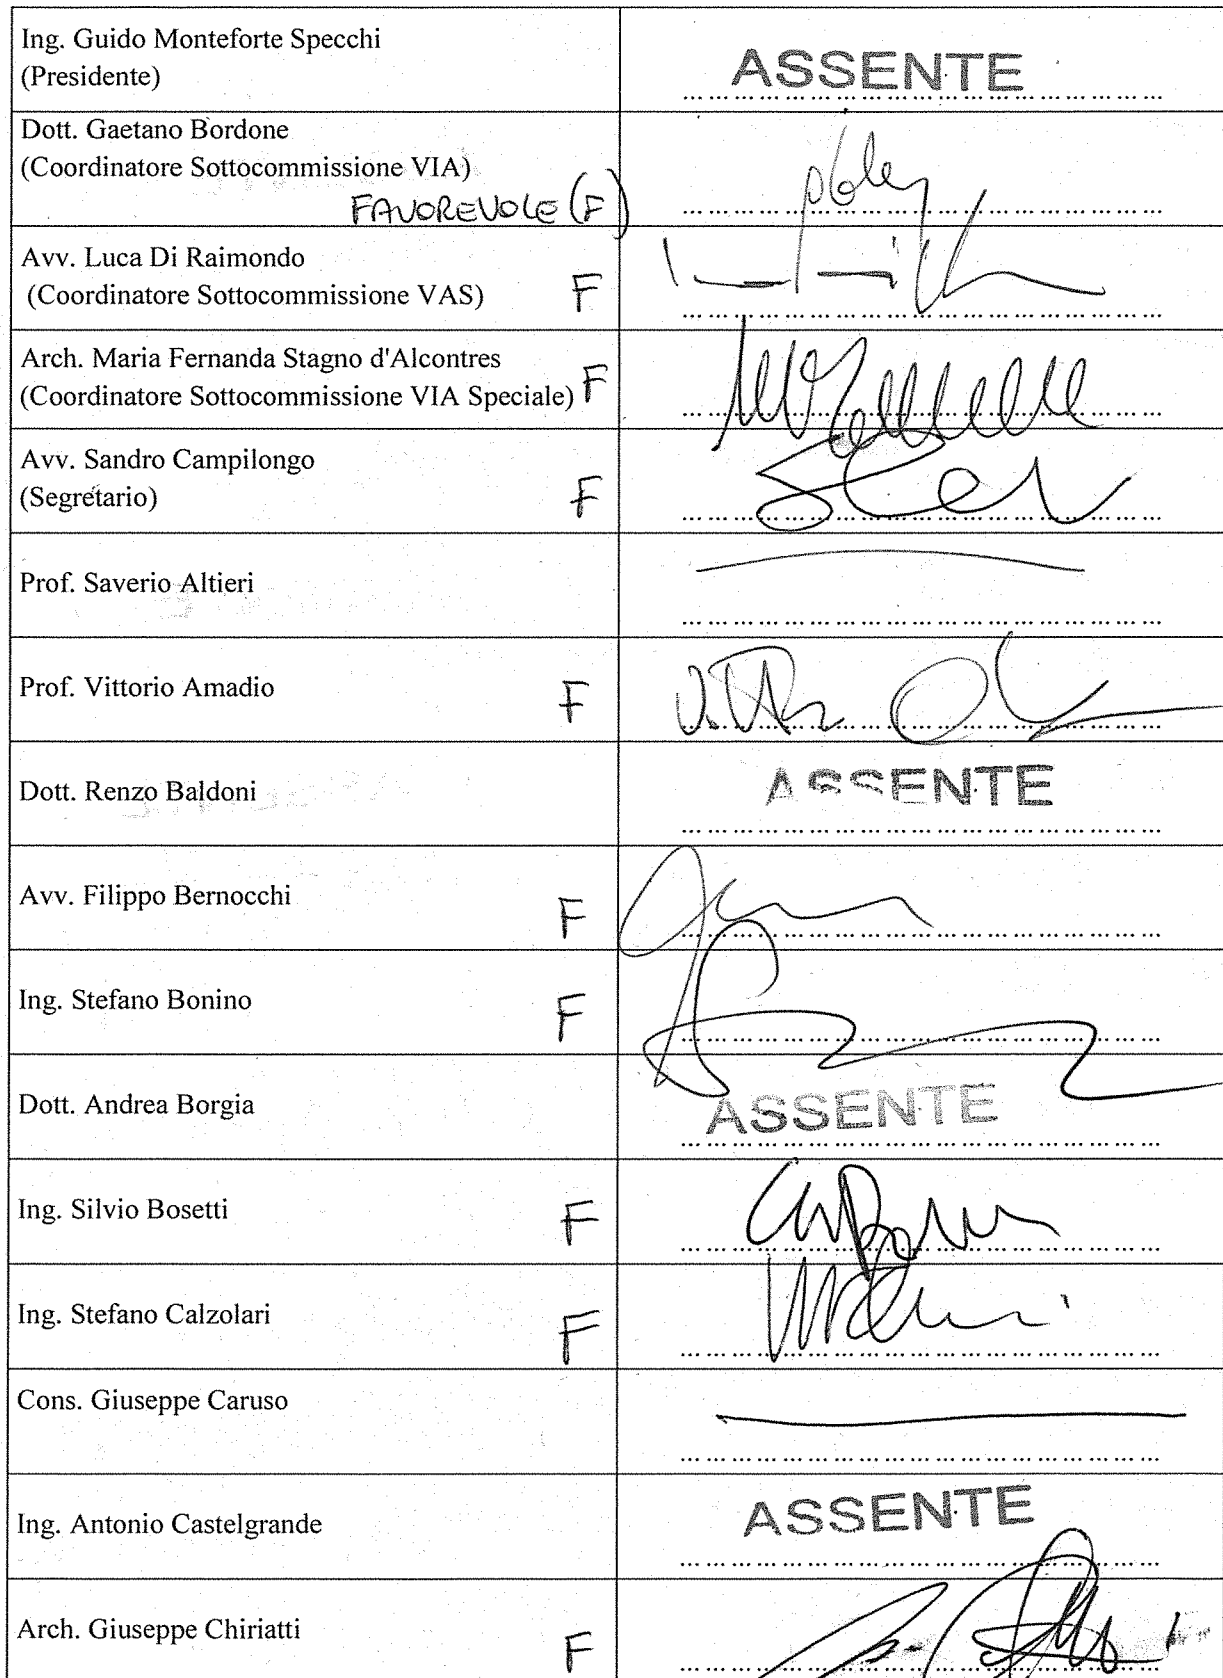 Ing. Guido Monteforte Specchi
(Presidente)
ASSENTE
Dott. Gaetano Bordone
(Coordinatore Sottocommissione VIA)
FAVOREVOLE (F)
Avv. Luca Di Raimondo
(Coordinatore Sottocommissione VAS) F
Arch. Maria Fernanda Stagno d'Alcontres
(Coordinatore Sottocommissione VIA Speciale) F
Avv. Sandro Campilongo
(Segretario) F
Prof. Saverio Altieri
Prof. Vittorio Amadio F
Dott. Renzo Baldoni ASSENTE
Avv. Filippo Bernocchi F
Ing. Stefano Bonino F
Dott. Andrea Borgia ASSENTE
Ing. Silvio Bosetti F
Ing. Stefano Calzolari F
Cons. Giuseppe Caruso
Ing. Antonio Castelgrande ASSENTE
Arch. Giuseppe Chiriatti F